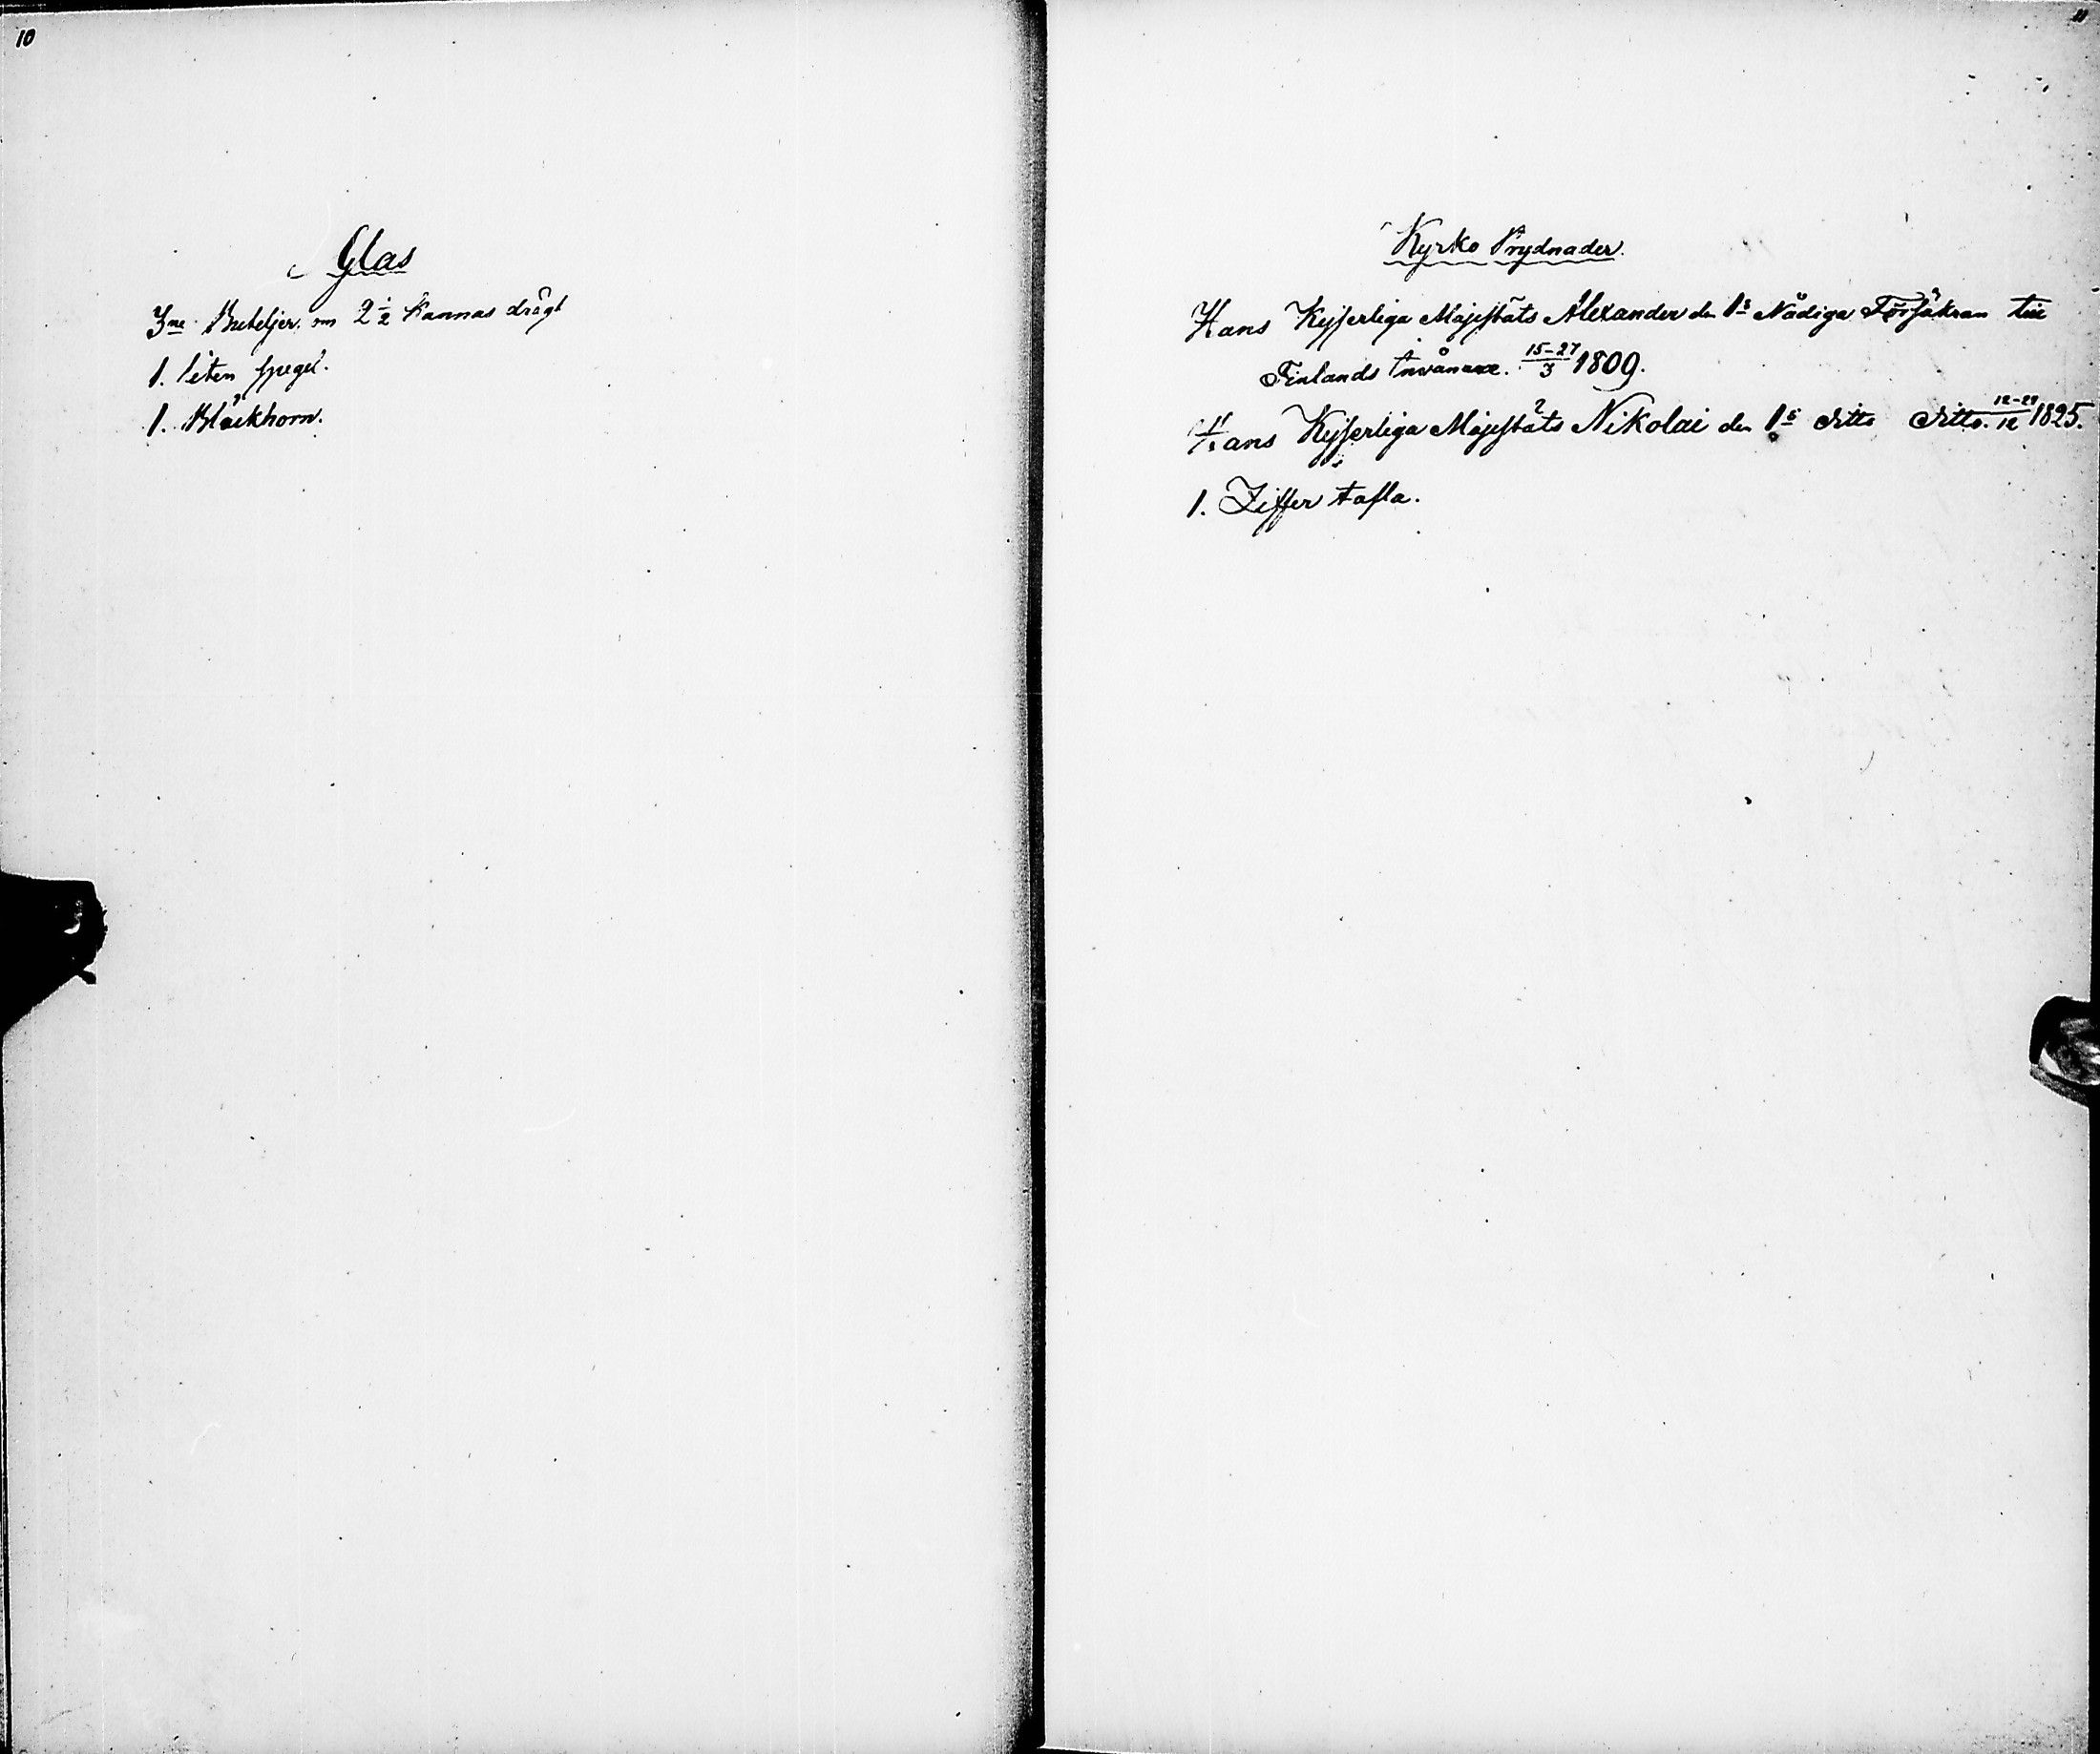 10
Glas
3ne Buteljer om 2 1/2 Kannas drägt
1. liten spegel.
1. Bläckhorn.
11
Kyrko Prydnader.
Hans Kejserliga Majestäts Alexander den 1s Nådiga Försäkran till
Finlands Invånare. 15-27/3 1809.
Hans Kejserliga Majestäts Nikolai den 1s ditto ditto. 12-24/12 1825.
1. Ziffer tafla.